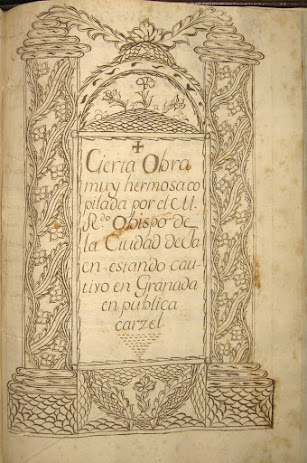 ✝
Cierta Obra
muy hermosa co
pilada por el M.
R.do Obispo de
la Ciudad de Ja
en estando cau-
tivo en Granada
en publica
carzel.